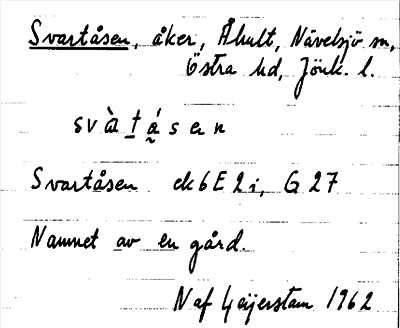 Svartåsen, åker, Åhult, Nävelsjö sn,
Östra hd, Jönk. l.
svàt̲á̰sen
Svartåsen ek 6E2i, G27
Namnet av en gård.
N af Geijerstam 1962